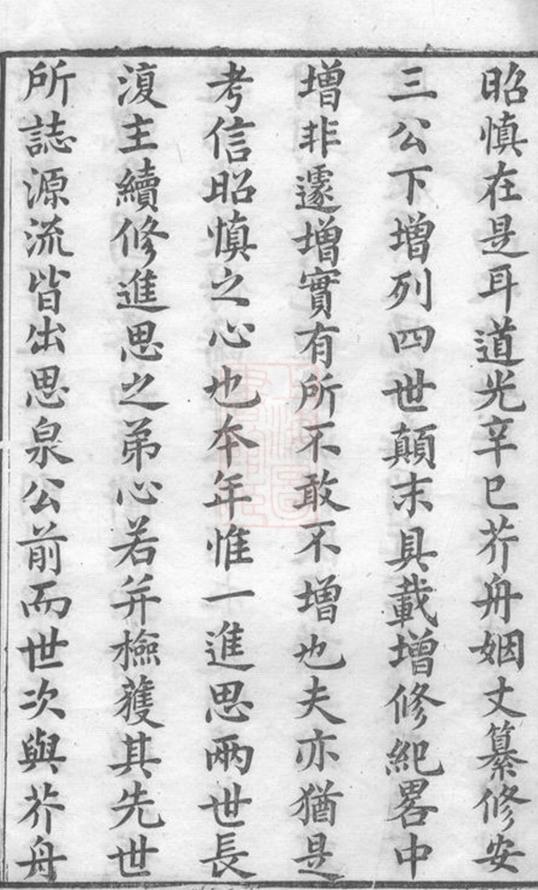 昭慎在是耳道光辛巳芥舟姻丈纂修安
三公下增列四世顛末具載增修紀畧中
增非遽增實有所不敢不增也夫亦猶是
考信昭慎之心也本年惟一進思兩世長
復主續修進思之弟心若并檢䕶其先世
所誌源流皆出思泉公前而世次與芥舟